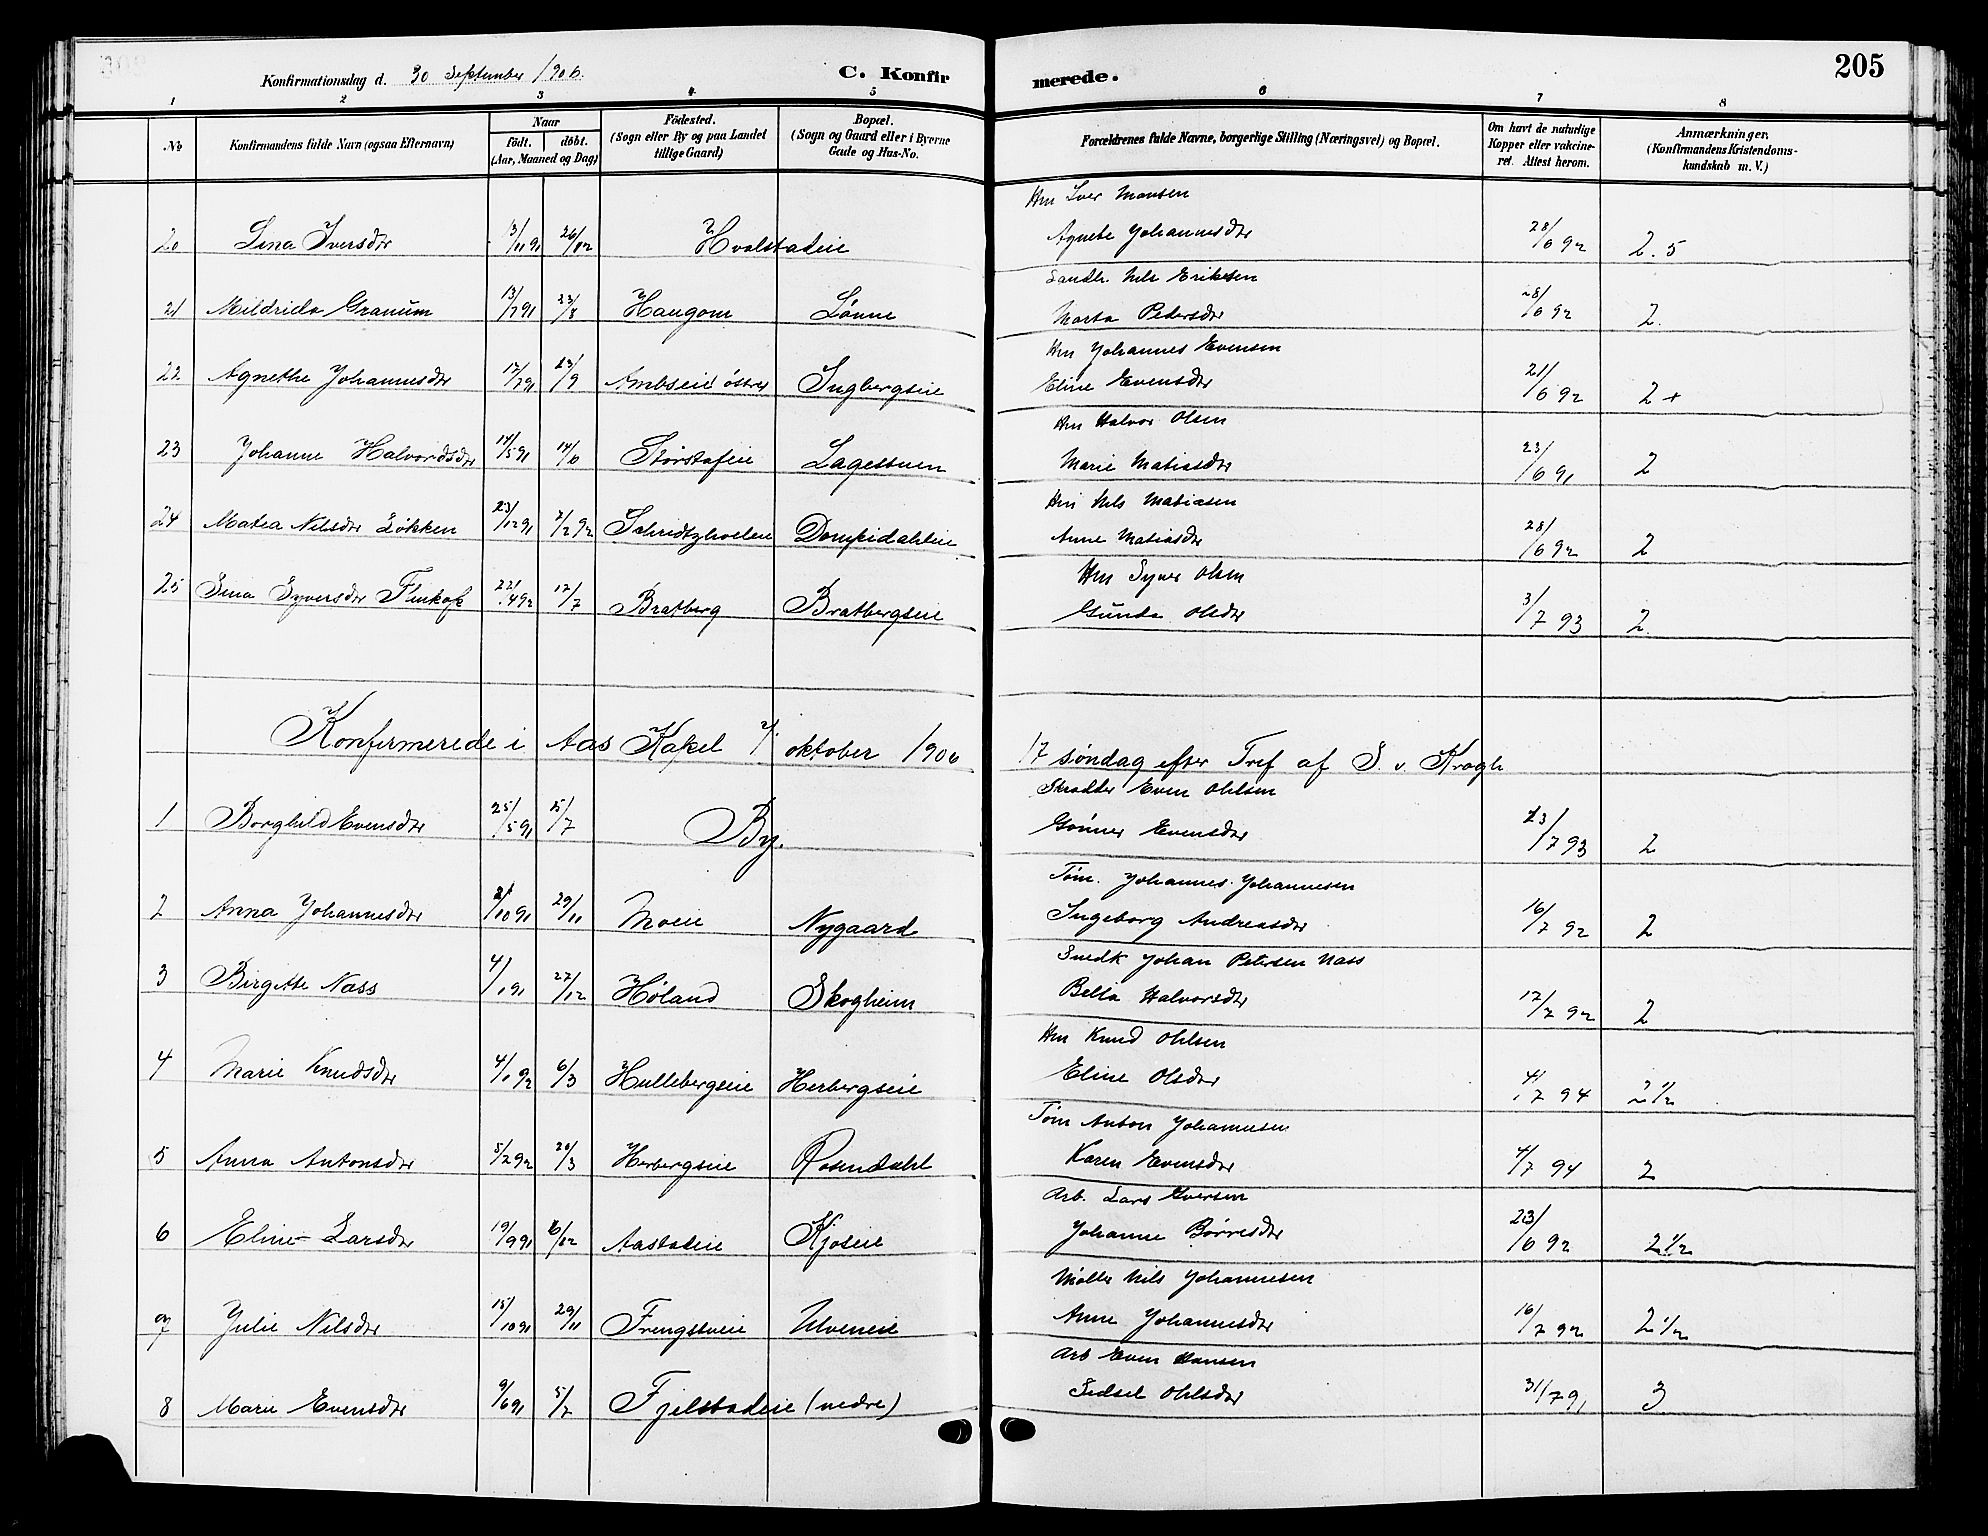 205
Konfirmationsdag d. 30 September 1906. C. Konfirmerede.
1 2 3 4 5 6 7 8
No
Konfirmandens fulde Navn (ogsaa Efternavn)
Naar
født. døbt.
(Aar, Maaned og Dag)
Fødested.
(Sogn eller By og paa Landet
tillige Gaard)
Bopæl.
(Sogn og Gaard eller i Byerne
Gade og Hus-No.
Forældrenes fulde Navne, borgerlige Stilling (Næringsvei) og Bopæl.
Om havt de naturlige
Kopper eller vakcine-
ret. Attest herom.
Anmærkninger.
(Konfirmandens Kristendoms-
kundskab m. V.)
Hm Iver Hansen
20 Lina Iversdtr 13/11 91 26/12 Hvalstadeie Agnete Johannesdtr 28/6 92 2.5
Landh. Nils Eriksen
21 Mildrida Granum 13/7 91 23/8 Haugom Lønne Marta Pedersdtr 28/6 92 2.
Hm Johannes Evensen
22 Agnethe Johannesdtr 17/7 91 13/9 Ambseie østre Ingbergseie Eline Evensdtr 21/6 92 2+
Hm Halvor Olsen
23 Johanne Halvordsdtr 14/5 91 14/6 Størstafeie Lagesstuen Marie Matiasdtr 23/6 91 2
Hm Nils Matiasen
24 Matea Nilsdtr Løkken 23/12 91 7/2 92 Anne Matiasdtr 28/6 92 2
Hm Syver Olsen
25 Lina Syversdtr 22/4 92 17/7 Bratberg Bratbergseie Gunda Olsdtr 3/7 93 2.
Konfirmerede i Aas Kapel 7/ oktober 1906 17 søndag efter Tref af S. v. Krogh
Skrædder Even Ohlsen
1 Borghild Evensdtr 25/5 91 5/7 By. Gønner Evensdtr 13/7 93 2
Tøm. Johannes Johannesen
2 Anna Johannesdtr 2/10 91 29/11 Moeie Nygaard Ingeborg Andreasdtr 16/7 92 2
Snedk Johan Petersen Næss
3 Birgitte Næss 4/1 91 27/12 Høland Skogheim Bella Halvorsdtr 17/7 92 2
Hm Knud Ohlsen
4 Marie Knudsdtr 4/1 92 6/3 Hullebergseie Herbergseie Eline Olsdtr 4/7 94 2 1/2
Tøm Anton Johannesen
5 Anna Antonsdtr 5/2 92 20/3 Herbergseie Rosendahl Karen Evensdtr 4/7 94 2
Arb. Lars Iversen
6 Eline Larsdtr 19/9 91 6/12 Aastadeie Kjoseie Johanne Børresdtr 23/6 92 2 1/2
Møller Nils Johannesen
7 Julie Nilsdtr 15/10 91 29/11 Frengstueie Ulveneie Anne Johannesdtr 16/7 92 2 1/2
Arb Even Hansen
8 Marie Evensdtr 9/6 91 5/7 Fjelstadeie (nedre) Sidsel Ohlsdtr 31/7 91 3